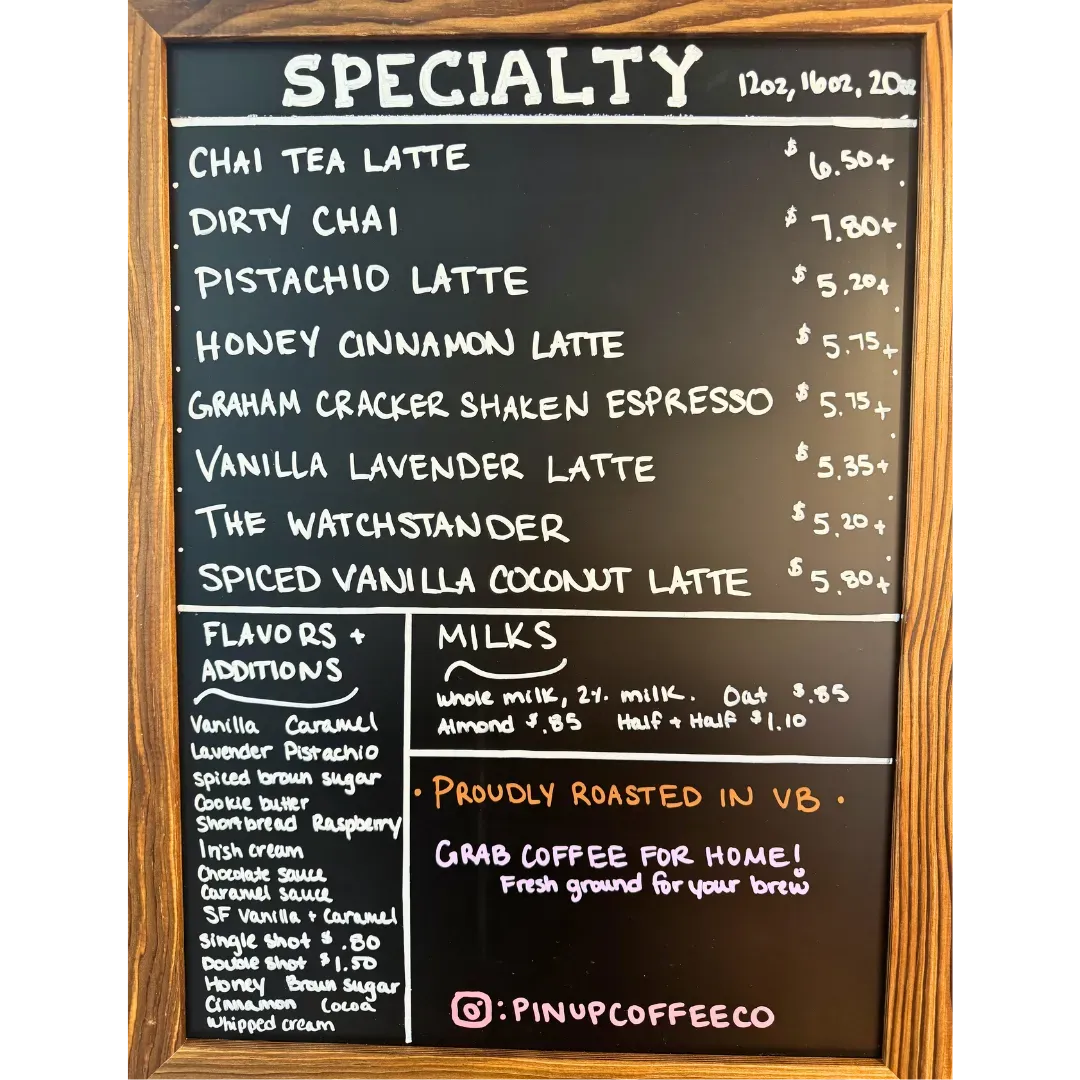 SPECIALTY 12oz, 16oz, 20oz
CHAI TEA LATTE $6.50+
DIRTY CHAI $7.80+
PISTACHIO LATTE $5.20+
HONEY CINNAMON LATTE $5.75+
GRAHAM CRACKER SHAKEN ESPRESSO $5.75+
VANILLA LAVENDER LATTE $5.35+
THE WATCHSTANDER $5.20+
SPICED VANILLA COCONUT LATTE $5.80+
FLAVORS +
ADDITIONS
Vanilla Caramel
Lavender Pistachio
Spiced brown sugar
Cookie butter
Shortbread Raspberry
Irish cream
Chocolate sauce
Caramel sauce
SF Vanilla + Caramel
Single shot $.80
Double shot $1.50
Honey Brown sugar
Cinnamon Cocoa
Whipped cream
MILKS
Whole milk, 2% milk. Oat $.85
Almond $.85 Half + Half $1.10
• PROUDLY ROASTED IN VB •
GRAB COFFEE FOR HOME!
Fresh ground for your brew
: PINUPCOFFEECO